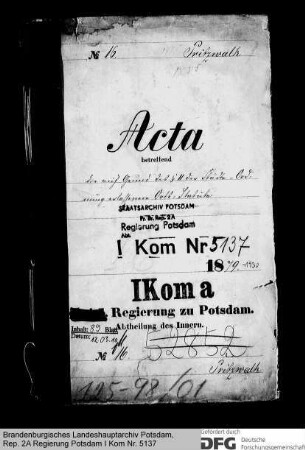 № 16. Pritzwalk
Acta
betreffend
die auf Grund des § 11 der Städte-Ord-
nung erlassenen Orts-Statute
STAATSARCHIV POTSDAM
Regierung Potsdam
I Kom Nr 5137
1879-1930
I Kom a
Regierung zu Potsdam.
Abtheilung des Innern.
Inhalt: 89 Blatt
№ 16. 52852
Pritzwalk
125-98/01
Brandenburgisches Landeshauptarchiv Potsdam,
Rep. 2A Regierung Potsdam I Kom Nr. 5137
Gefördert durch
DFG Deutsche
Forschungsgemeinschaft